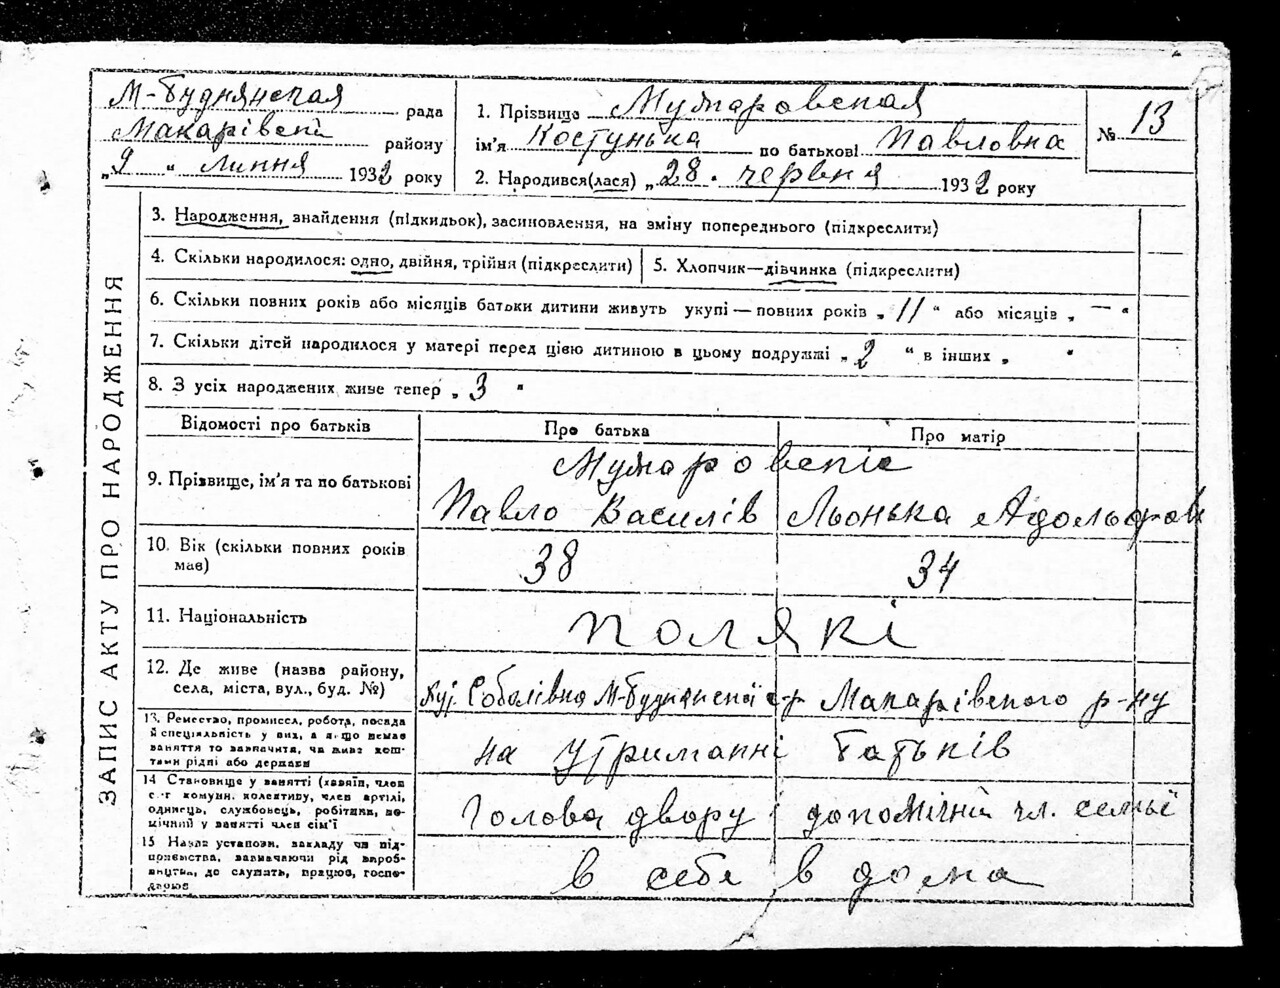 М-Буднянская рада
Макарівскі району
„9“ липня 1932 року
1. Прізвище Мумаровская
ім'я Костунька по батькові Павловна
2. Народився(лася) „28. червня 1932 року
№ 13
ЗАПИС АКТУ ПРО НАРОДЖЕННЯ
3. Народження, знайдення (підкидьок), засиновлення, на зміну попереднього (підкреслити)
4. Скільки народилося: одно, двійня, трійня (підкреслити)
5. Хлопчик—дівчинка (підкреслити)
6. Скільки повних років або місяців батьки дитини живуть укупі — повних років „11“ або місяців „—“
7. Скільки дітей народилося у матері перед цією дитиною в цьому подружжі „2“ в інших „ “
8. З усіх народжених живе тепер „3“
Відомості про батьків
Про батька
Про матір
9. Прізвище, ім'я та по батькові
Мумаровскіє
Павло Василів
Льонька Адольфов
10. Вік (скільки повних років має)
38
34
11. Національність
поляки
12. Де живе (назва району, села, міста, вул., буд. №)
Соболівка М-Буднянскої с-р Макарівского р-ну
13. Ремество, промисел, робота, посада
й спеціальність у них, а якщо немає
заняття то зазначити, чи живе кош-
тами рідні або держави
на утриманні батьків
14 Становище у занятті (хазяїн, член
с.-г комуни, колективу, член артілі,
одинець, службовець, робітник, по-
мічний у занятті член сім'ї
Голова двору
допомічний чл. семьї
15 Назва установи, закладу чи під-
приємства, зазначаючи рід вироб-
ництва, де служить, працює, госпо-
дарює
в себе в дома